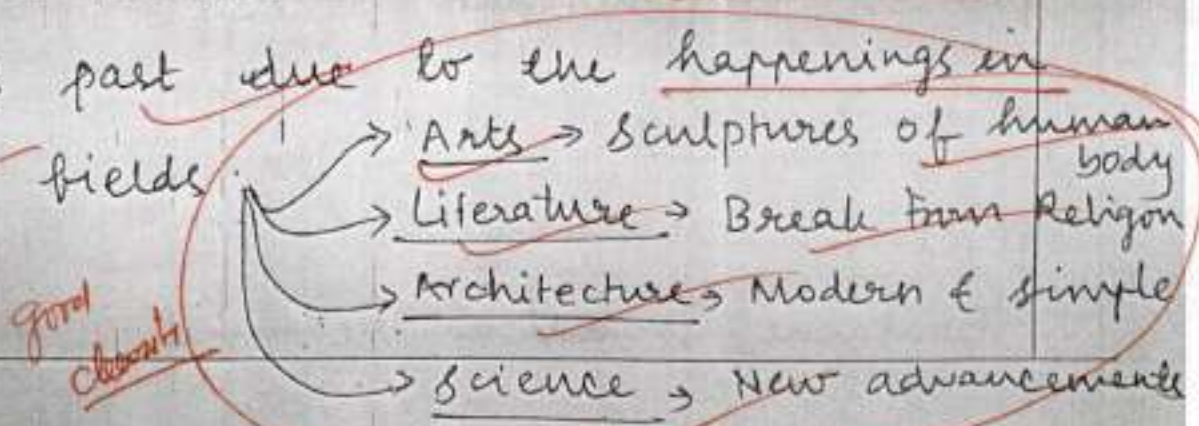 past due to the happenings in
fields → Arts → Sculptures of human body
→ Literature → Break from Religon
→ Architecture → Modern & simple
→ Science → New advancements
good